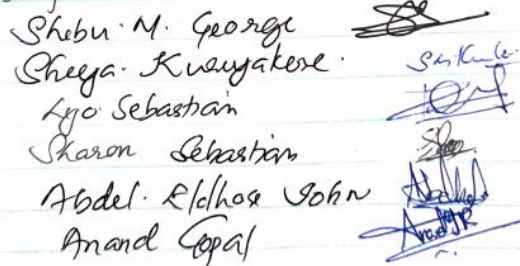 Shebu. M. George
Sheeja. Kuruyakose.
Lijo Sebastian
Sharon Sebastian
Abdel. Eldhose John
Anand Gopal